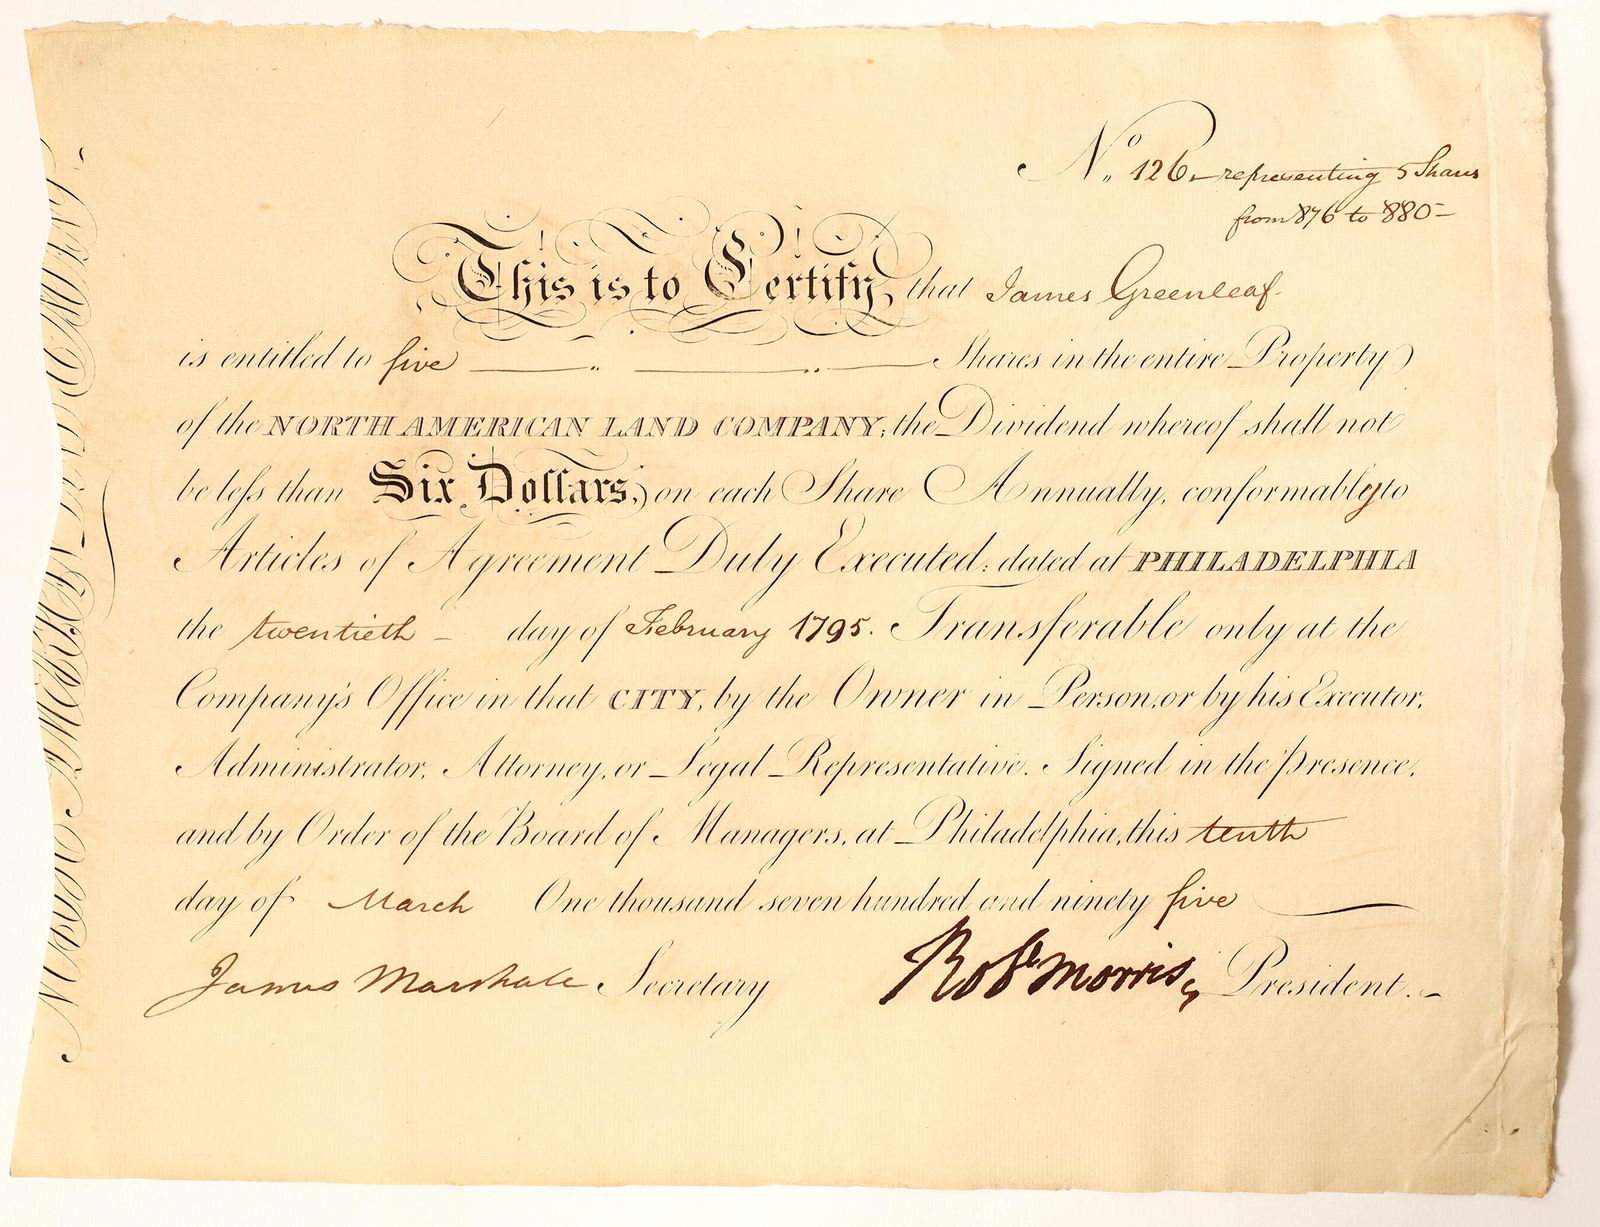 No. 126 - representing 5 Shares
from 876 to 880 -
This is to Certify, that James Greenleaf
is entitled to five Shares in the entire Property
of the NORTH AMERICAN LAND COMPANY; the Dividend whereof shall not
be less than Six Dollars, on each Share Annually, conformably to
Articles of Agreement Duly Executed: dated at PHILADELPHIA
the twentieth - day of February 1795. Transferable only at the
Company's Office in that CITY, by the Owner in Person, or by his Executor,
Administrator, Attorney, or Legal Representative. Signed in the presence,
and by Order of the Board of Managers, at Philadelphia, this tenth
day of March One thousand seven hundred and ninety five
James Marshall Secretary Robt Morris, President.